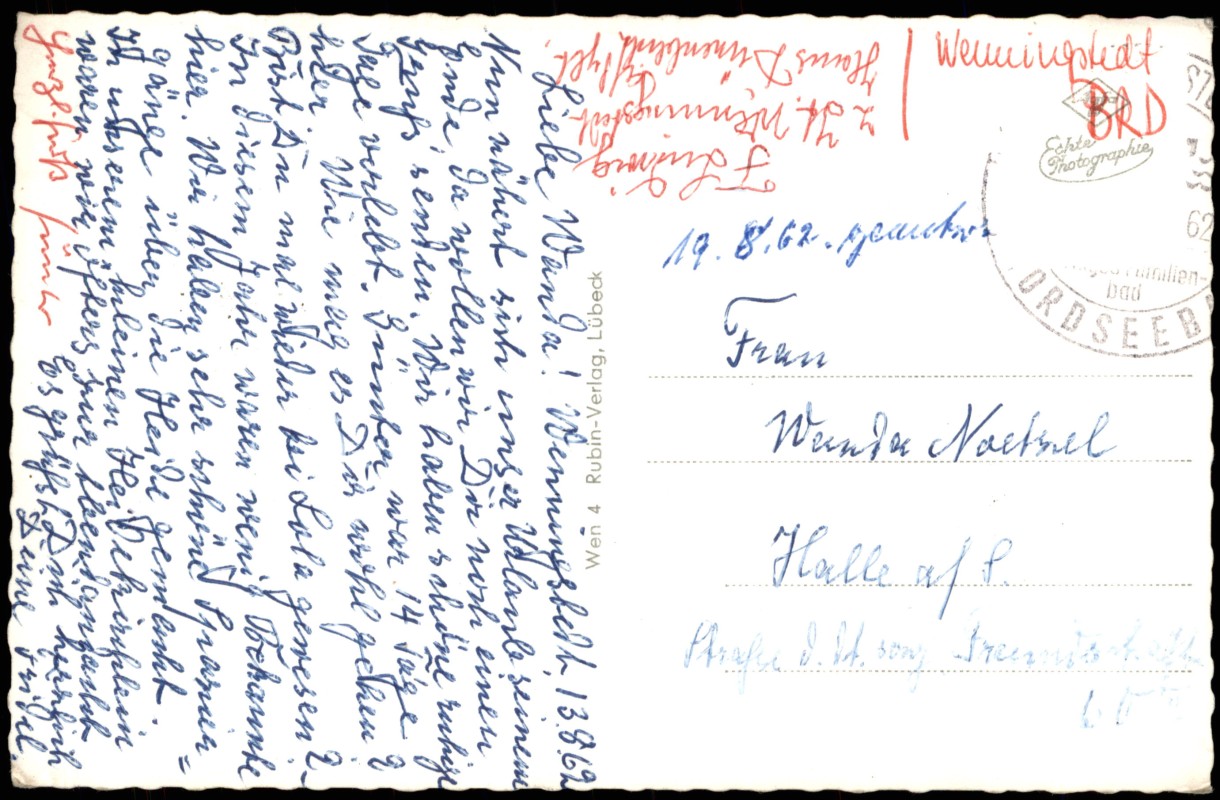 Wenningstedt, 13.8.62
Liebe Wanda!
Nun nähert sich unser Urlaub seinem
Ende, da wollen wir Dir noch einen
Gruß senden. Wir haben schöne ruhige
Tage verlebt. Günter war 14 Tage
hier. Wie mag es Dir wohl gehen?
Bist Du mal wieder bei Lola gewesen?
In diesem Jahr waren wenig Bekannte
hier. Wir haben sehr schöne Spazier=
gänge über die Heide gemacht.
In unserem kleinen Heidekirchlein
waren wir öfters zur Abendandacht
Es grüßt Dich herzlich
Deine Friedel
Herzl. Grüße Günter
Wen 4 Rubin-Verlag, Lübeck
F. Ludwig
z. Zt. Wenningstedt
Sylt,
Haus
Wenningstedt
BRD
Echte
Photographie
62
Familien-
bad
NORDSEEB
19.8.62.
Frau
Wanda Noetzel
Halle a/S.
Straße d. dt. sowj. Freundschaft